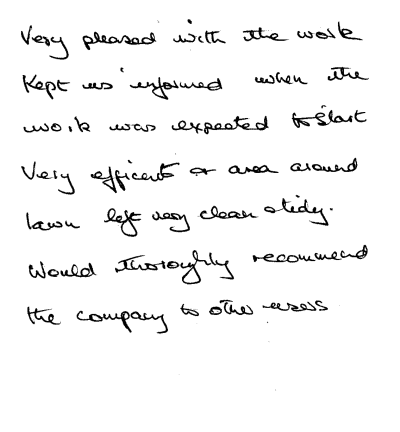 Very pleased with the work
Kept us informed when the
work was expected to start
Very efficent & area around
lawn left very clean & tidy.
Would thoroughly recommend
the company to other users